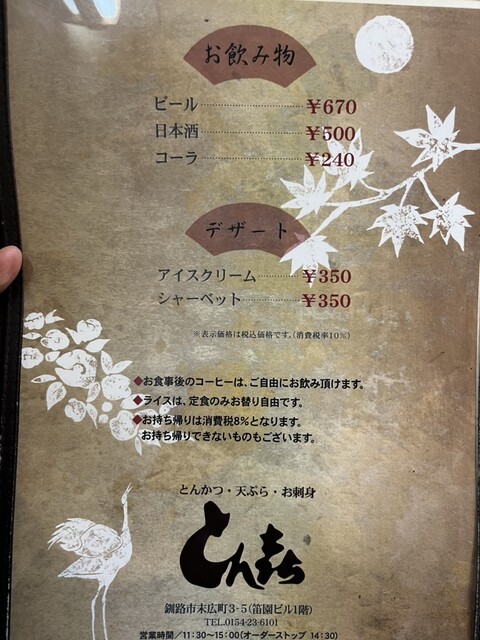 お飲み物
ビール ¥670
日本酒 ¥500
コーラ ¥240
デザート
アイスクリーム ¥350
シャーベット ¥350
※表示価格は税込価格です。(消費税率10%)
◆お食事後のコーヒーは、ご自由にお飲み頂けます。
◆ライスは、定食のみお替り自由です。
◆お持ち帰りは消費税8%となります。
お持ち帰りできないものもございます。
とんかつ・天ぷら・お刺身
とん㐂
釧路市末広町3-5(笛園ビル1階)
TEL.0154-23-6101
営業時間/11:30〜15:00(オーダーストップ 14:30)